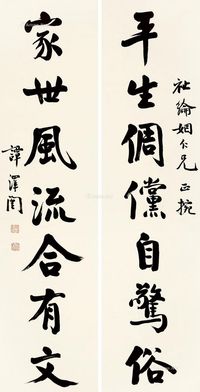 社綸姻仁兄正捥
平生倜儻自驚俗
家世風流合有文
譚澤闓